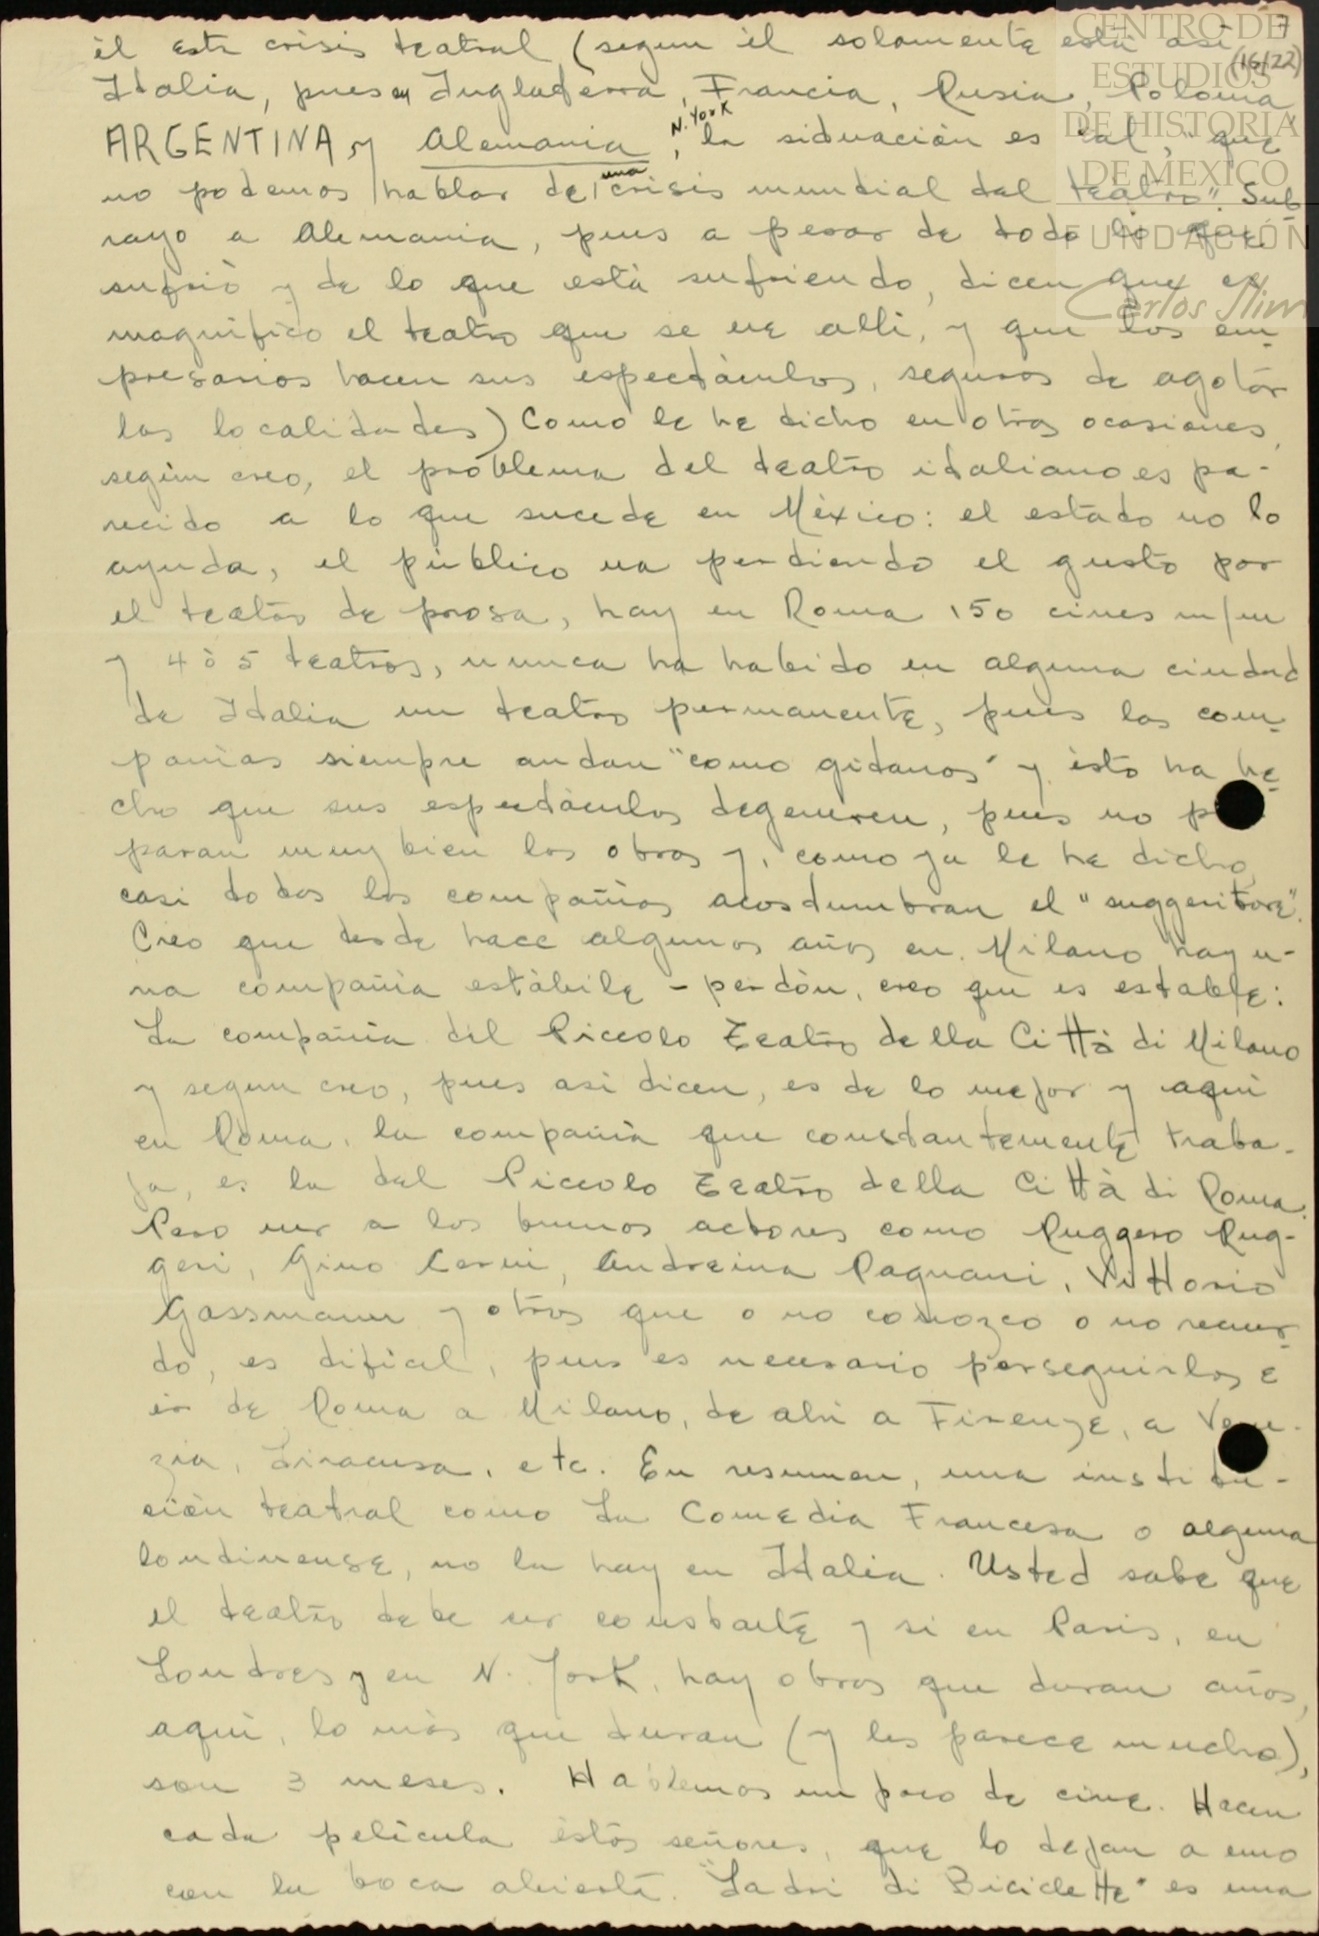 CENTRO DE
ESTUDIOS
DE HISTORIA
DE MEXICO
FUNDACIÓN
Carlos Slim
7
(16/22)
él esta crisis teatral (segun él solamente está asi
Italia, pues en Inglaterra, Francia, Rusia, Polonia
ARGENTINA, y Alemania, N. York la situación es tal, "que
no podemos hablar de una crisis mundial del teatro". Sub
rayo a Alemania, pues a pesar de todo lo que
sufrió y de lo que está sufriendo, dicen que es
magnífico el teatro que se ve allí, y que los em-
presarios hacen sus espectáculos, seguros de agotar
las localidades) Como le he dicho en otras ocasiones,
según creo, el problema del teatro italiano es pa-
recido a lo que sucede en México: el estado no lo
ayuda, el público va perdiendo el gusto por
el teatro de prosa, hay en Roma 150 cines m/m
y 4 ó 5 teatros, nunca ha habido en alguna ciudad
de Italia un teatro permanente, pues las com-
pañias siempre andan "como gitanos" y ésto ha he-
cho que sus espectáculos degeneren, pues no
paran muy bien las obras y, como ya le he dicho,
casi todas las compañias acostumbran el "suggeritore".
Creo que desde hace algunos años en Milano hay u-
na compañia estábile - perdón, creo que es estable:
La compañia del Piccolo Teatro della Città di Milano
y segun creo, pues asi dicen, es de lo mejor y aquí
en Roma, la compañia que constantemente traba-
ja, es la del Piccolo Teatro della Città di Roma.
Pero ver a los buenos actores como Ruggero Rug-
geri, Gino Cervi, Andreina Pagnani, Vittorio
Gassmann y otros que o no conozco o no recuer-
do, es dificil, pues es necesario perseguirlos e
ir de Roma a Milano, de ahi a Firenze, a Vene-
zia, Siracusa, etc. En resumen, una institu-
ción teatral como La Comedia Francesa o alguna
londinense, no la hay en Italia. Usted sabe que
el teatro debe ser constante y si en Paris, en
Londres y en N. York, hay obras que duran años,
aquí, lo más que duran (y les parece mucho),
son 3 meses. Hablemos un poco de cine. Hacen
cada película éstos señores, que lo dejan a uno
con la boca abierta. "Ladri di Biciclette" es una